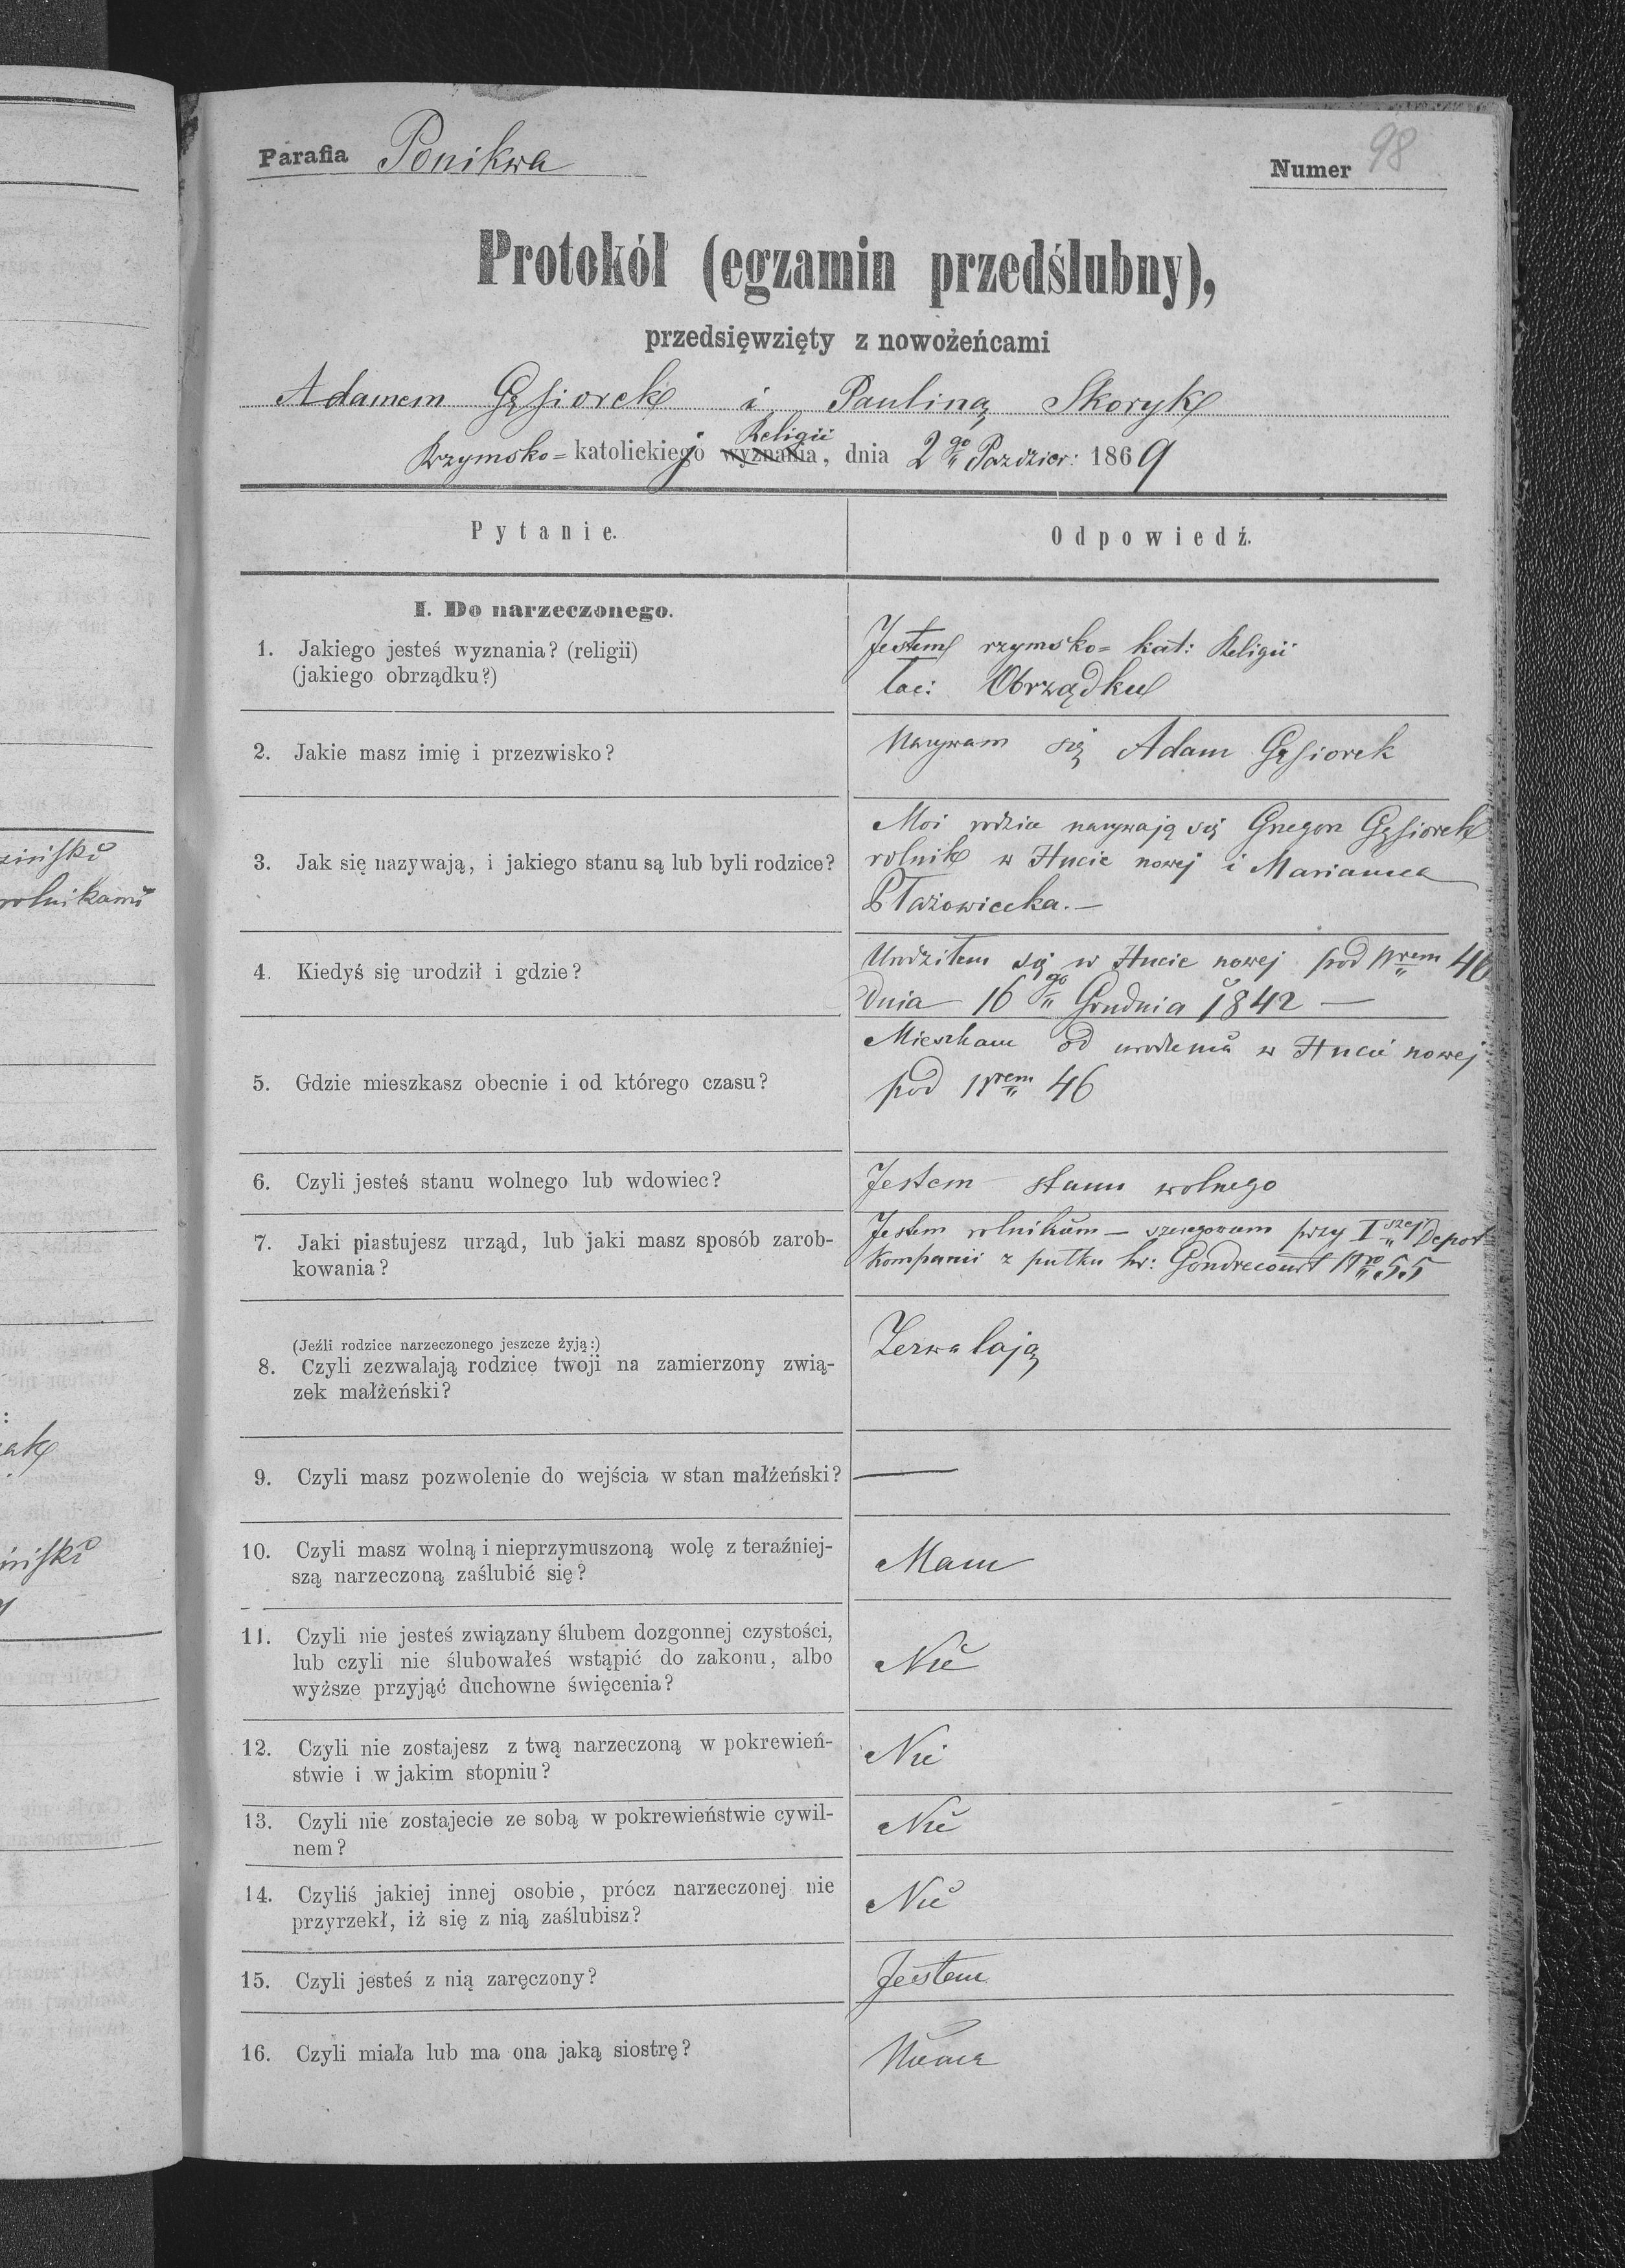 Parafia Ponikwa
Numer 98
Protokół (egzamin przedślubny),
przedsięwzięty z nowożeńcami
Adamem Gąsiorek i Pauliną Skoryk
Rzymsko= katolickiego wyznania, Religii dnia 2go Pazdzier: 1869
Pytanie.
Odpowiedź.
I. Do narzeczonego.
1. Jakiego jesteś wyznania? (religii)
(jakiego obrządku?)
Jestem rzymsko= kat: Religii
łac: Obrządku
2. Jakie masz imię i przezwisko?
Nazywam się Adam Gąsiorek
3. Jak się nazywają, i jakiego stanu są lub byli rodzice?
Moi rodzice nazywają się Grzegorz Gąsiorek
rolnik w Hucie nowej i Marianna
Błażowiecka.—
4. Kiedyś się urodził i gdzie?
Urodziłem się w Hucie nowej pod Nrem 46
Dnia 16go Grudnia 1842 —
5. Gdzie mieszkasz obecnie i od którego czasu?
Mieszkam od urodzenia w Hucie nowej
pod Nrem 46
6. Czyli jesteś stanu wolnego lub wdowiec?
Jestem stanu wolnego
7. Jaki piastujesz urząd, lub jaki masz sposób zarob-
kowania?
Jestem rolnikiem — szeregowem przy Iszej Depot
Kompanii z pułku hr: Gondrecourt Nro 55
(Jeźli rodzice narzeczonego jeszcze żyją:)
8. Czyli zezwalają rodzice twoji na zamierzony zwią-
zek małżeński?
Zezwalają
9. Czyli masz pozwolenie do wejścia w stan małżeński?
—
10. Czyli masz wolną i nieprzymuszoną wolę z teraźniej-
szą narzeczoną zaślubić się?
Mam
11. Czyli nie jesteś związany ślubem dozgonnej czystości,
lub czyli nie ślubowałeś wstąpić do zakonu, albo
wyższe przyjąć duchowne święcenia?
Nie
12. Czyli nie zostajesz z twą narzeczoną w pokrewień-
stwie i w jakim stopniu?
Nie
13. Czyli nie zostajecie ze sobą w pokrewieństwie cywil-
nem?
Nie
14. Czyliś jakiej innej osobie, prócz narzeczonej nie
przyrzekł, iż się z nią zaślubisz?
Nie
15. Czyli jesteś z nią zaręczony?
Jestem
16. Czyli miała lub ma ona jaką siostrę?
Niema
rolnikami